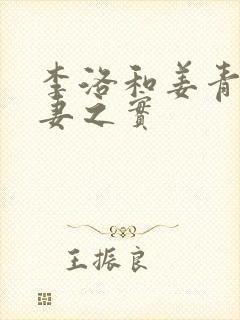 李洛和姜青
妻之實
王振良